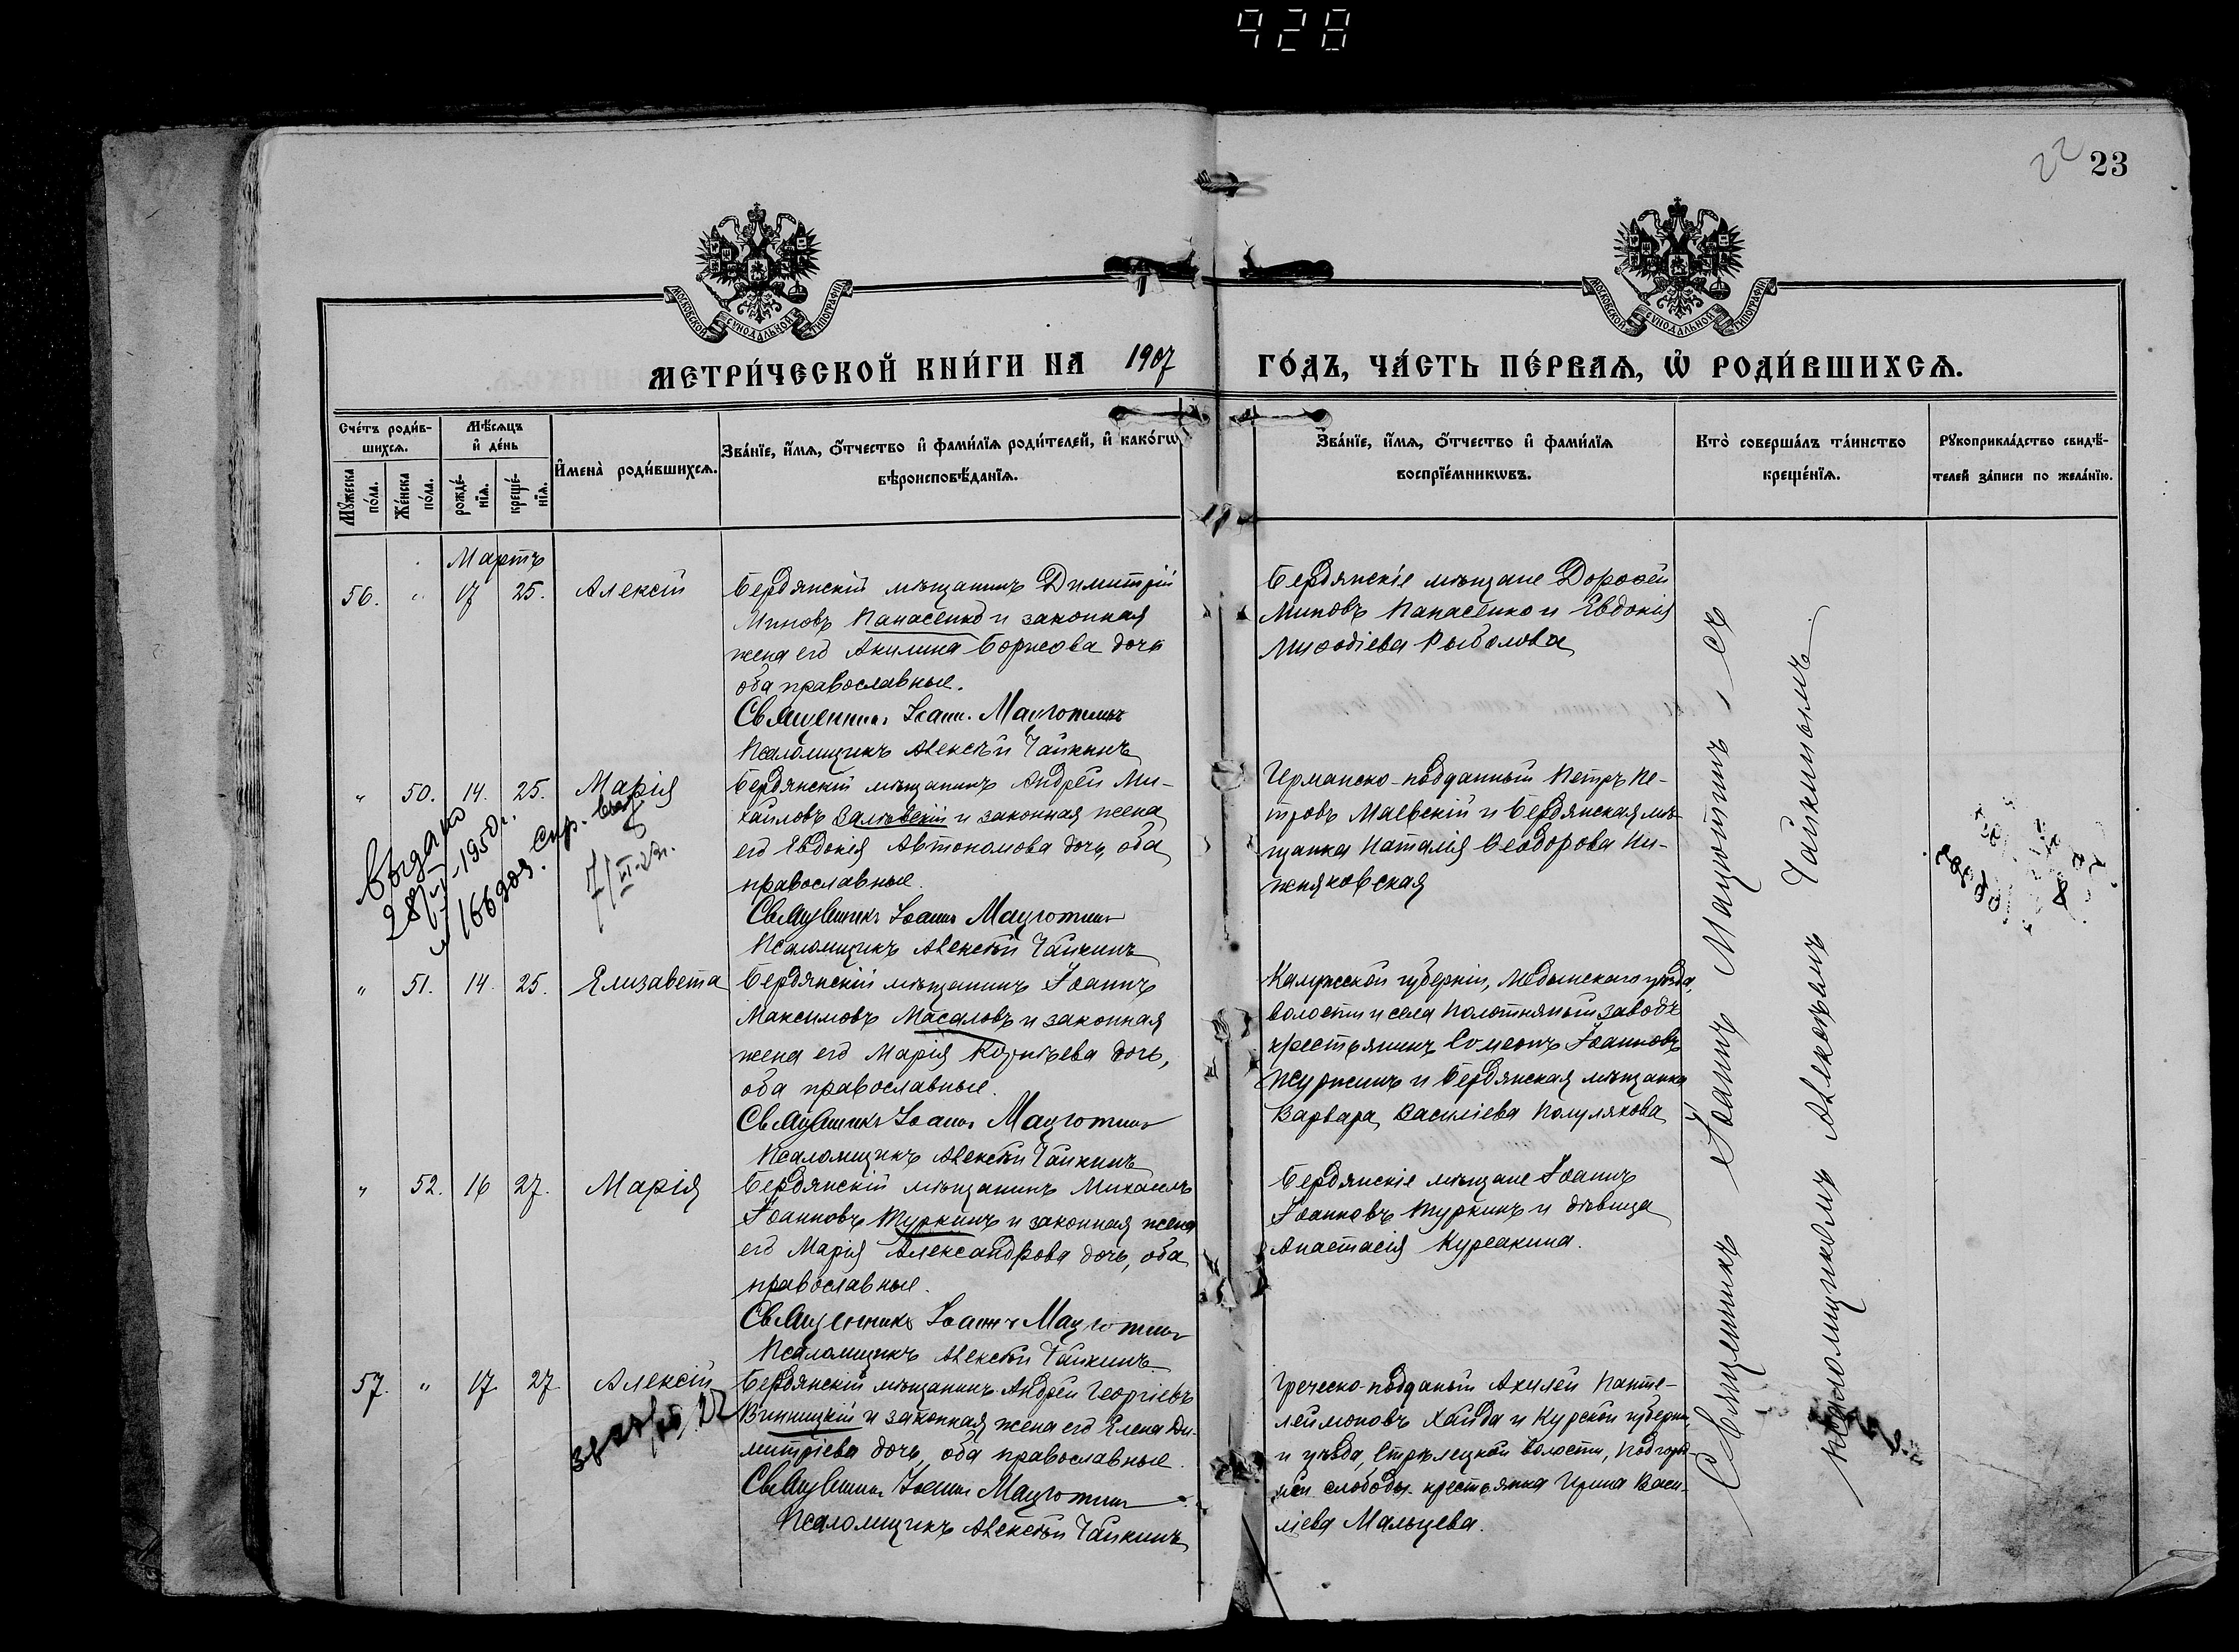 928
22 23
МОСКОВСКОЙ СѴНОДАЛЬНОЙ ТИПОГРАФІИ
МОСКОВСКОЙ СѴНОДАЛЬНОЙ ТИПОГРАФІИ
МЕТРИ́ЧЕСКОЙ КНИ́ГИ НА 1907 ГО́ДЪ, ЧА́СТЬ ПЕ́РВАѦ, Ѡ҆ РОДИ́ВШИХСѦ.
Сче́тъ роди́в-
шихсѧ.
Мꙋ́жеска
по́ла.
Же́нска
по́ла.
Мѣ́сѧцъ
и҆ де́нь
рожде́-
нїѧ.
креще́-
нїѧ.
И҆мена̀ роди́вшихсѧ.
Зва́нїе, и҆́мѧ, ѻ҆́тчество и҆ фами́лїѧ роди́телей, и҆ како́гѡ
вѣроисповѣ́данїѧ.
Зва́нїе, и҆́мѧ, ѻ҆́тчество и҆ фами́лїѧ
воспрїе́мникѡвъ.
Кто̀ соверша́лъ та́инство
креще́нїѧ.
Рꙋкоприкла́дство свидѣ́-
телей за́писи по жела́нїю.
Мартъ
56. " 17 25. Алексій
Бердянскій мѣщанинъ Димитрій
Миновъ Панасенко и законная
жена его Акилина Борисова дочь
оба православные.
Священникъ Іоаннъ Мацютинъ
Псаломщикъ Алексѣй Чайкинъ
Бердянскіе мѣщане Дороѳей
Миновъ Панасенко и Евдокія
Миѳодіева Рыболова
" 50. 14. 25. Марія
Выдано
1950г.
Бердянскій мѣщанинъ Андрей Ми-
хаиловъ Залѣвскій и законная жена
его Евдокія Автономова дочь, оба
православные.
Священникъ Іоаннъ Мацютинъ
Псаломщикъ Алексѣй Чайкинъ
Германско-подданный Петръ Пе-
тровъ Маевскій и Бердянская мѣ-
щанка Наталія Ѳеодорова Ни-
жняковская
" 51. 14. 25. Елизавета
Бердянскій мѣщанинъ Іоаннъ
Максимовъ Масаловъ и законная
жена его Марія дочь,
оба православные.
Священникъ Іоаннъ Мацютинъ
Псаломщикъ Алексѣй Чайкинъ
Калужской губерніи, Медынскаго уѣзда,
волости и села Полотняный заводъ
крестьянинъ Сумеонъ Іоанновъ
и Бердянская мѣщанка
Варвара Василіева Полулякова
" 52. 16 27. Марія
Бердянскій мѣщанинъ Михаилъ
Іоанновъ Туркинъ и законная жена
его Марія Александрова дочь, оба
православные.
Священникъ Іоаннъ Мацютинъ
Псаломщикъ Алексѣй Чайкинъ
Бердянскіе мѣщане Іоаннъ
Іоанновъ Туркинъ и дѣвица
Анастасія Курсакина.
57. " 17 27 Алексій
Бердянскій мѣщанинъ Андрей Георгіевъ
Винницкій и законная жена его Елена Ди-
митріева дочь, оба православные.
Священникъ Іоаннъ Мацютинъ
Псаломщикъ Алексѣй Чайкинъ
Греческо-подданый Ахилей Панте-
леймоновъ Хайда и Курской губерніи
и уѣзда, Стрѣлецкой волости, Подгород-
ней слободы крестьянка Ирина Васи-
ліева Мальцева.
Священникъ Іоаннъ Мацютинъ съ
псаломщикомъ Алексѣемъ Чайкинымъ.